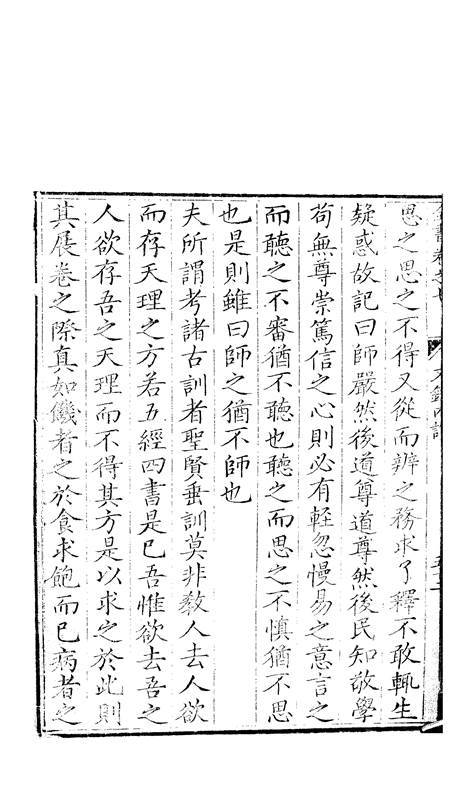 思之思之不得又從而辨之務求了釋不敢輒生
疑惑故記曰師嚴然後道尊道尊然後民知敬學
苟無尊崇篤信之心則必有輕忽慢易之意言之
而聽之不審猶不聽也聽之而思之不慎猶不思
也是則雖曰師之猶不師也
夫所謂考諸古訓者聖賢垂訓莫非教人去人欲
而存天理之方若五經四書是已吾惟欲去吾之
人欲存吾之天理而不得其方是以求之於此則
其展卷之際真如饑者之於食求飽而已病者之